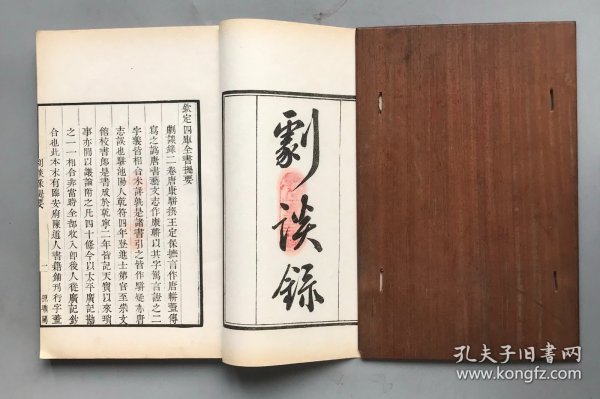 劇談錄
欽定四庫全書提要
劇談錄二卷唐康駢撰王定保摭言作唐軿蓋傳
寫之譌唐書藝文志作康軿以其字駕言證之二
字義皆相合未詳孰是諸書引之皆作駢疑亦唐
志誤也駢池陽人乾符四年登進士第官至崇文
館校書郎是書成於乾寧二年皆記天寶以來瑣
事亦間以議論附之凡四十條今以太平廣記勘
之一一相合非當時全部收入即後人從廣記鈔
合也此本末有臨安府陳道人書籍鋪刊行字蓋
劇談錄提要 一 照曠閣
孔夫子旧书网
www.kongfz.com